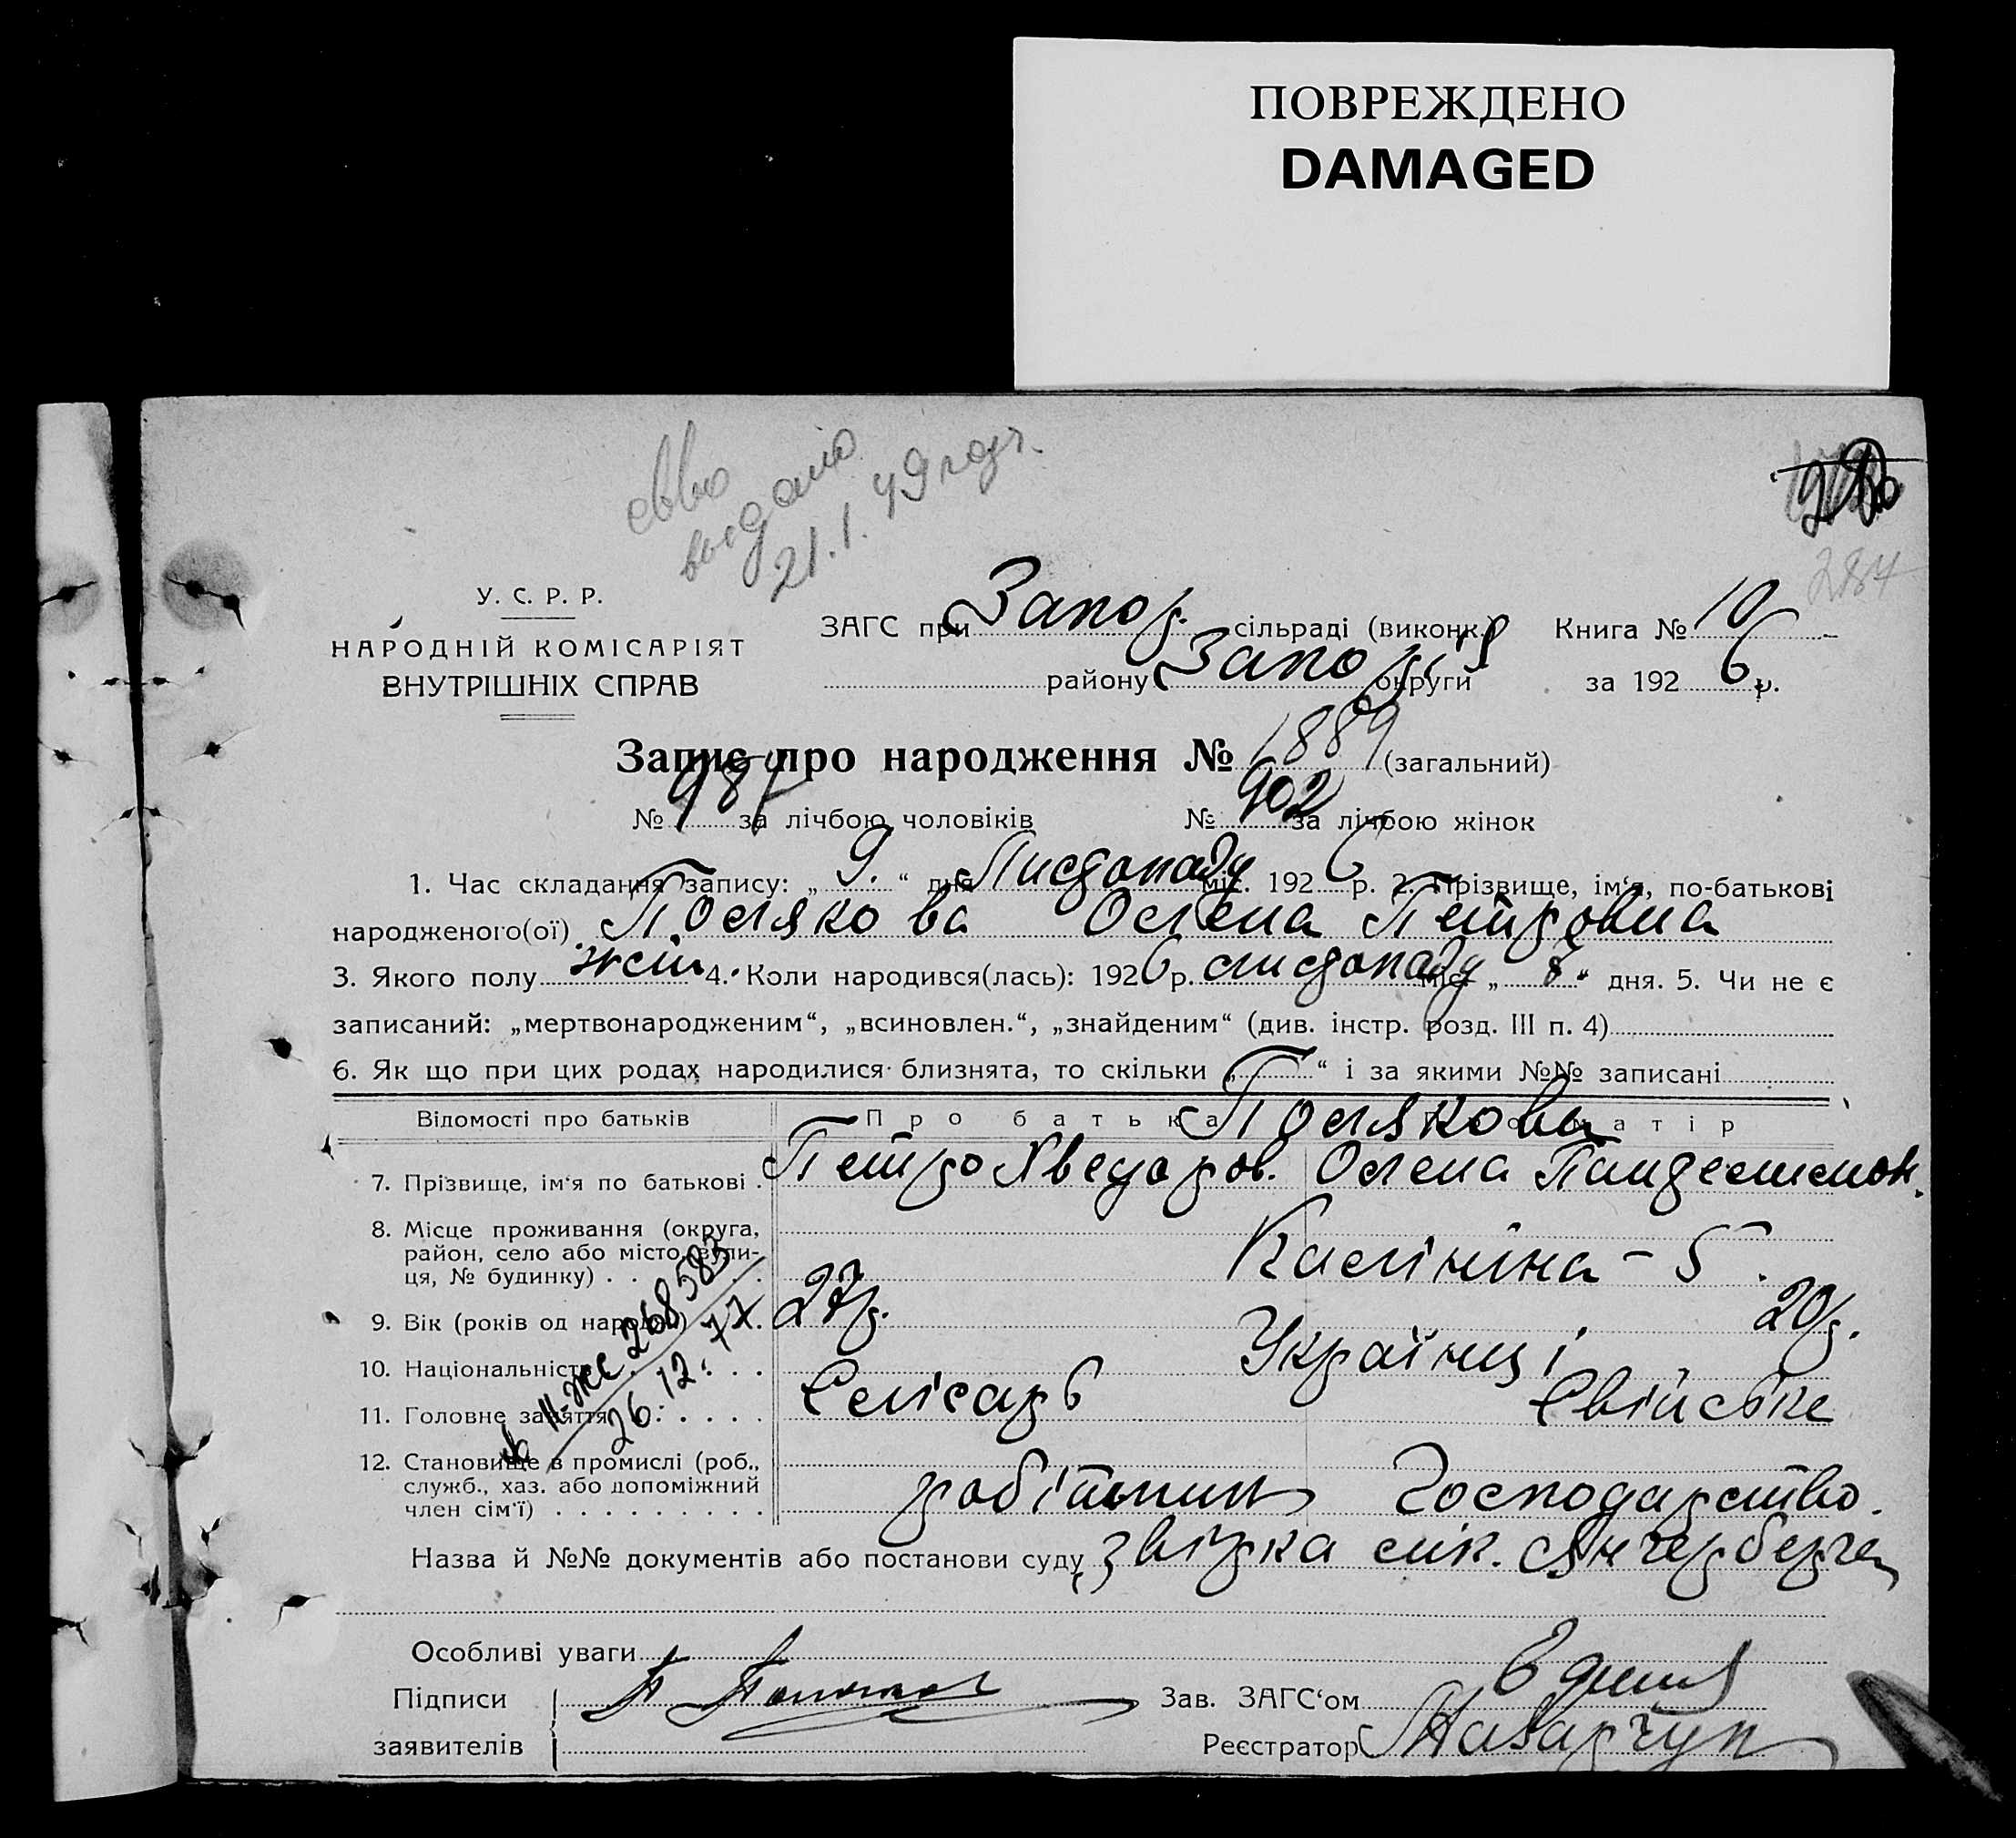 ПОВРЕЖДЕНО
DAMAGED
выдано
21.1.49
284
У. С. Р. Р.
НАРОДНІЙ КОМІСАРІЯТ
ВНУТРІШНІХ СПРАВ
ЗАГС при Запор. сільраді (виконк.) Книга № 10
району Запор. округи за 1926 р.
Запис про народження № 1889 (загальний)
№ 987 за лічбою чоловіків № 902 за лічбою жінок
1. Час складання запису: „ 9. “ дня Листопаду міс. 1926 р. 2. Прізвище, ім‘я, по-батькові
народженого(ої) Полякова Олена Петровна
3. Якого полу жін. 4. Коли народився(лась): 1926 р. листопаду міс. „ 8 “ дня. 5. Чи не є
записаний: „мертвонародженим“, „всиновлен.“, „знайденим“ (див. інстр. розд. III п. 4)
6. Як що при цих родах народилися близнята, то скільки „ “ і за якими №№ записані
Відомості про батьків Про батька Про матір
Полякови
7. Прізвище, ім‘я по батькові Петро Хведоров. Олена
8. Місце проживання (округа,
район, село або місто, вули-
ця, № будинку) Калініна - 5.
9. Вік (років од народж.) 27р. 20р.
10. Національність Українці
11. Головне заняття Слісарь Свійське
12. Становище в промислі (роб.,
служб., хаз. або допоміжний
член сім‘ї) робітник Господарство.
II-ЖС 268583
26.12.77
Назва й №№ документів або постанови суду звірка лік.
Особливі уваги
Підписи
заявителів
Зав. ЗАГС‘ом
Реєстратор Назарчук